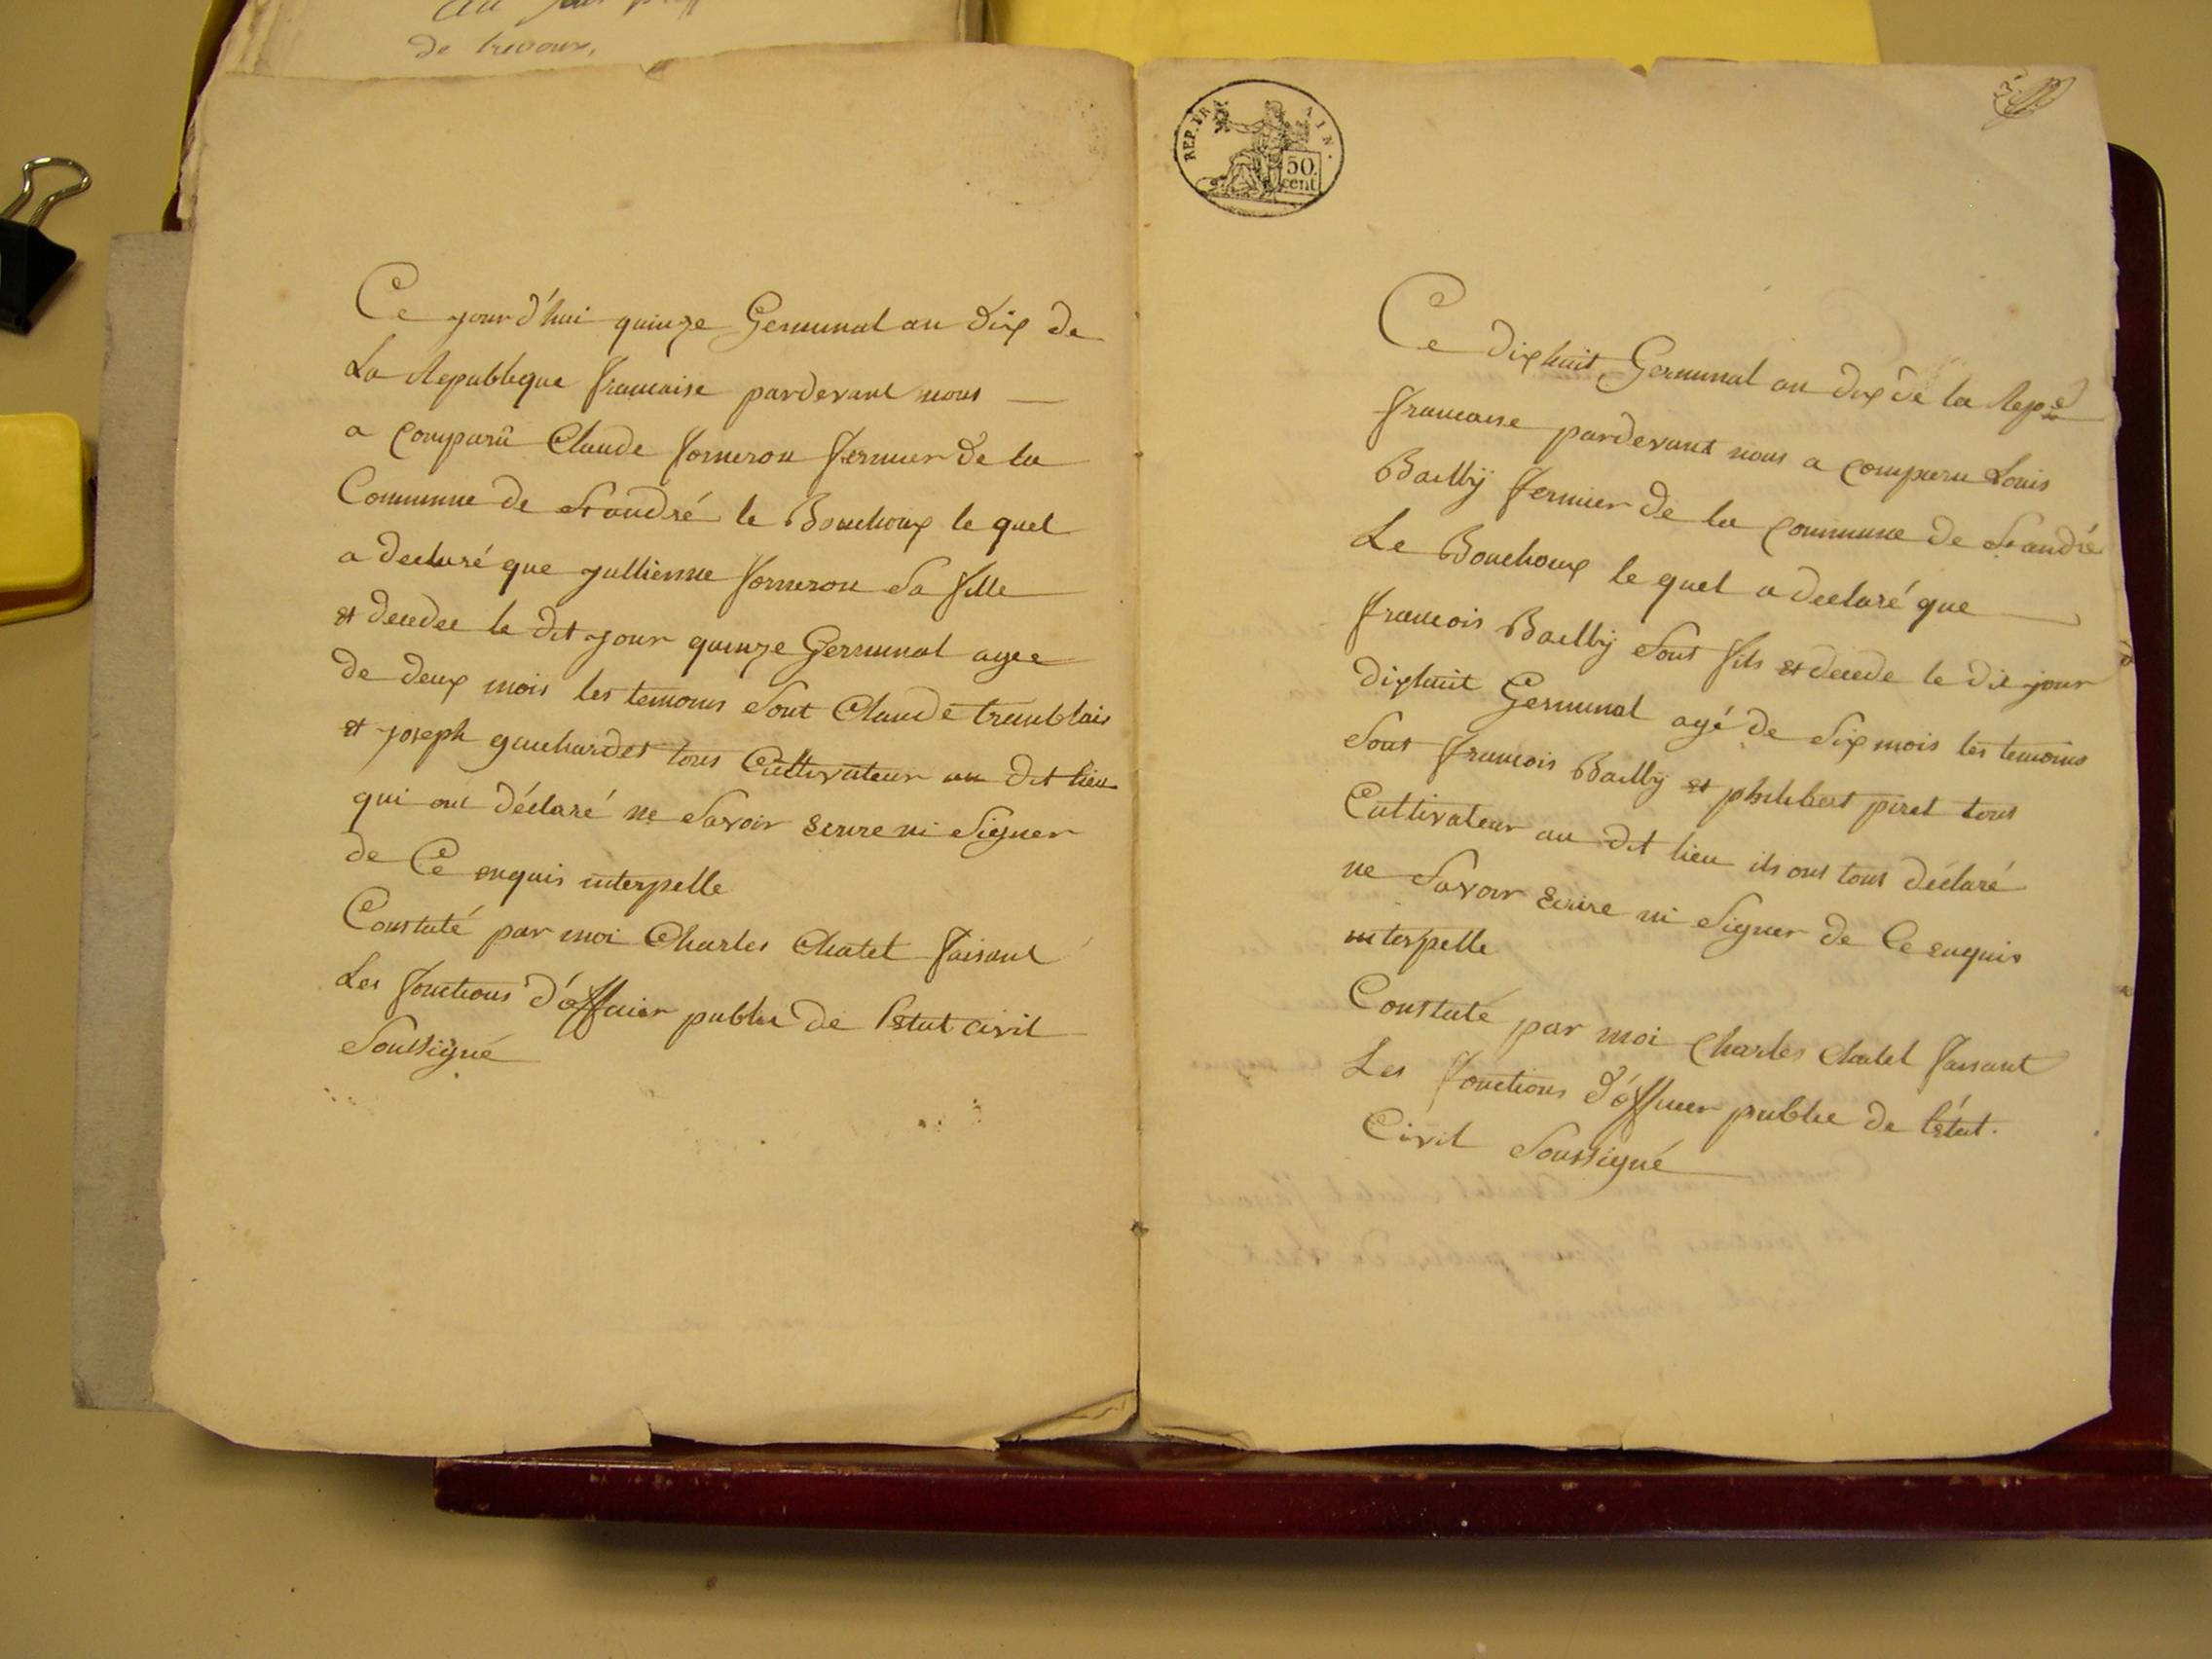 de trevoux,
Ce jourd'hui quinze Germinal an dix de
La Republique francaise pardevant nous —
a comparû Claude forneron fermier de la
Commune de St andré le Bouchoux le quel
a declaré que jullienne forneron sa fille
et decedee le dit jour quinze Germinal agee
de deux mois les temoins sont Claude tremblais
et joseph gauchardet tous Cultivateur au dit lieu
qui ont déclaré ne savoir ecrire ni signer
de Ce enquis interpelle
Constaté par moi Charles Chatel faisant
Les fonctions d'officier public de l'etat civil
soussigné
REP. FRA AIN.
50
cent
Ce dixhuit Germinal an dix de la Rep
francaise pardevant nous a comparu Louis
Bailly fermier de la commune de St andré
Le Bouchoux le quel a declaré que
francois Bailly sont fils et decede le dit jour
dixhuit Germinal agé de six mois les temoins
sont francois Bailly et philibert piret tous
Cultivateur au dit lieu ils ont tous déclaré
ne savoir ecrire ni signer de Ce enquis
interpelle
Constaté par moi Charles Chatel faisant
Les fonctions d'officier public de l'état.
Civil soussigné